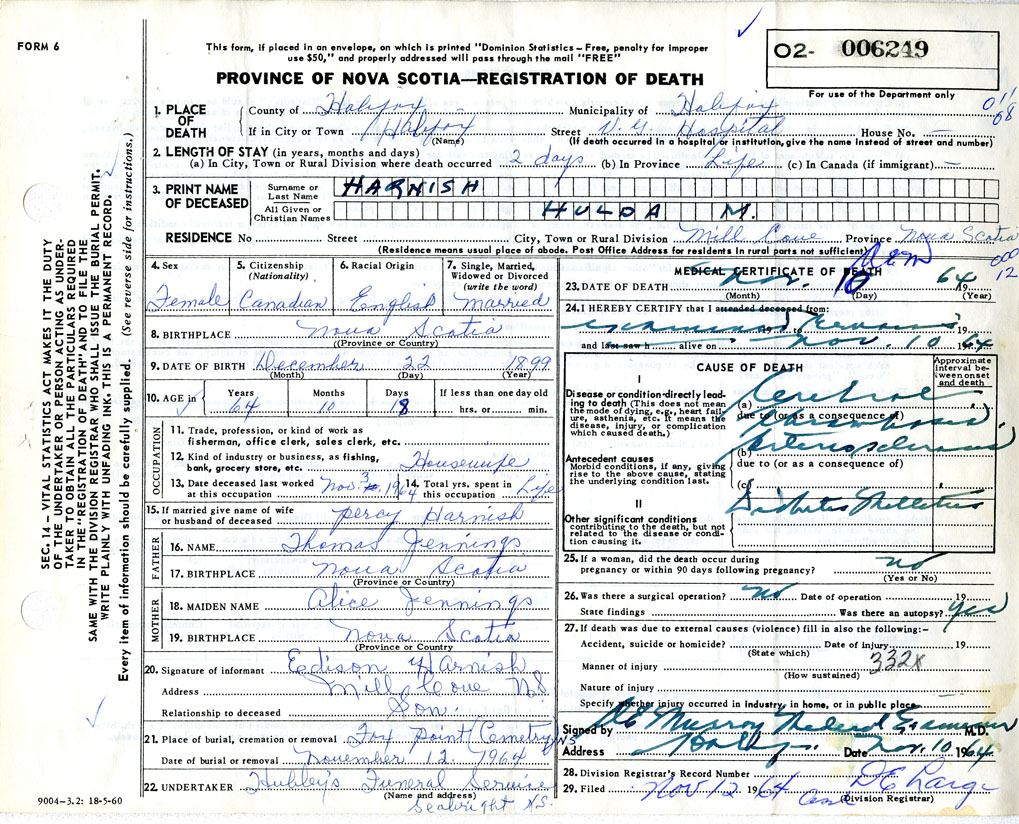 FORM 6
This form, if placed in an envelope, on which is printed "Dominion Statistics – Free, penalty for improper
use $50," and properly addressed will pass through the mail "FREE"
O2- 006249
For use of the Department only
PROVINCE OF NOVA SCOTIA—REGISTRATION OF DEATH
011
68
1. PLACE OF DEATH
County of Halifax Municipality of Halifax
If in City or Town Halifax Street V. G. Hospital House No. —
(Name) (If death occurred in a hospital or institution, give the name instead of street and number)
2. LENGTH OF STAY (in years, months and days)
(a) In City, Town or Rural Division where death occurred 2 days (b) In Province Life (c) In Canada (if immigrant) —
3. PRINT NAME OF DECEASED
Surname or Last Name HARNISH
All Given or Christian Names HULDA M.
RESIDENCE No. Street City, Town or Rural Division Mill Cove Province Nova Scotia
(Residence means usual place of abode. Post Office Address for residents in rural parts not sufficient)
000
12
4. Sex 5. Citizenship (Nationality) 6. Racial Origin 7. Single, Married, Widowed or Divorced (write the word)
Female Canadian English Married
8. BIRTHPLACE Nova Scotia
(Province or Country)
9. DATE OF BIRTH December 22 1899
(Month) (Day) (Year)
10. AGE in Years Months Days If less than one day old
64 10 18 hrs. or min.
OCCUPATION
11. Trade, profession, or kind of work as
fisherman, office clerk, sales clerk, etc.
12. Kind of industry or business, as fishing,
bank, grocery store, etc. Housewife
13. Date deceased last worked at this occupation Nov. 3, 1964 14. Total yrs. spent in this occupation Life
15. If married give name of wife
or husband of deceased Percy Harnish
FATHER
16. NAME Thomas Jennings
17. BIRTHPLACE Nova Scotia
(Province or Country)
MOTHER
18. MAIDEN NAME Alice Jennings
19. BIRTHPLACE Nova Scotia
(Province or Country
20. Signature of informant Edison Harnish
Address Mill Cove N.S
Relationship to deceased Son.
21. Place of burial, cremation or removal Fox Point Cemetery NS
Date of burial or removal November 12, 1964
22. UNDERTAKER Hubley's Funeral Service
(Name and address)
Sealright N.S.
9004—3.2: 18-5-60
MEDICAL CERTIFICATE OF DEATH
23. DATE OF DEATH Nov. 10 1964
(Month) (Day) (Year)
24. I HEREBY CERTIFY that I attended deceased from:
examined 19 to remains 19
and last saw h alive on Nov. 10 1964
CAUSE OF DEATH
Approximate interval between onset and death
I
Disease or condition directly leading to death (This does not mean the mode of dying, e.g., heart failure, asthenia, etc. It means the disease, injury, or complication which caused death.)
(a) Cerebral
due to (or as a consequence of)
thrombosis,
(b) arteriosclerosis
Antecedent causes
Morbid conditions, if any, giving rise to the above cause, stating the underlying condition last.
due to (or as a consequence of)
(c)
II
Diabetes Mellitus
Other significant conditions
contributing to the death, but not related to the disease or condition causing it.
25. If a woman, did the death occur during
pregnancy or within 90 days following pregnancy? no
(Yes or No)
26. Was there a surgical operation? no Date of operation 19
State findings Was there an autopsy? yes
27. If death was due to external causes (violence) fill in also the following:–
Accident, suicide or homicide? Date of injury 19
(State which)
332X
Manner of injury
(How sustained)
Nature of injury
Specify whether injury occurred in industry, in home, or in public place
Signed by Murray Medical Examiner M.D.
Address Date Nov. 10 1964
28. Division Registrar's Record Number
29. Filed Nov 12 1964 D E Large
(Division Registrar)
SEC. 14 – VITAL STATISTICS ACT MAKES IT THE DUTY
OF THE UNDERTAKER OR PERSON ACTING AS UNDER-
TAKER TO OBTAIN ALL THE PARTICULARS REQUIRED
IN THE "REGISTRATION OF DEATH" AND TO FILE THE
SAME WITH THE DIVISION REGISTRAR WHO SHALL ISSUE THE BURIAL PERMIT.
WRITE PLAINLY WITH UNFADING INK. THIS IS A PERMANENT RECORD.
Every item of information should be carefully supplied. (See reverse side for instructions.)